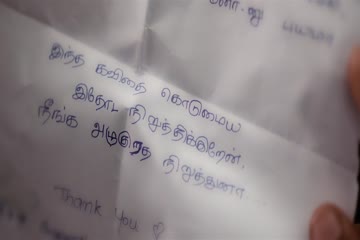 இந்த கவிதை கொடுமைய
இதோட நிறுத்திக்கிறேன்.
நீங்க அழுகுறத நிறுத்துனா...
Thank You